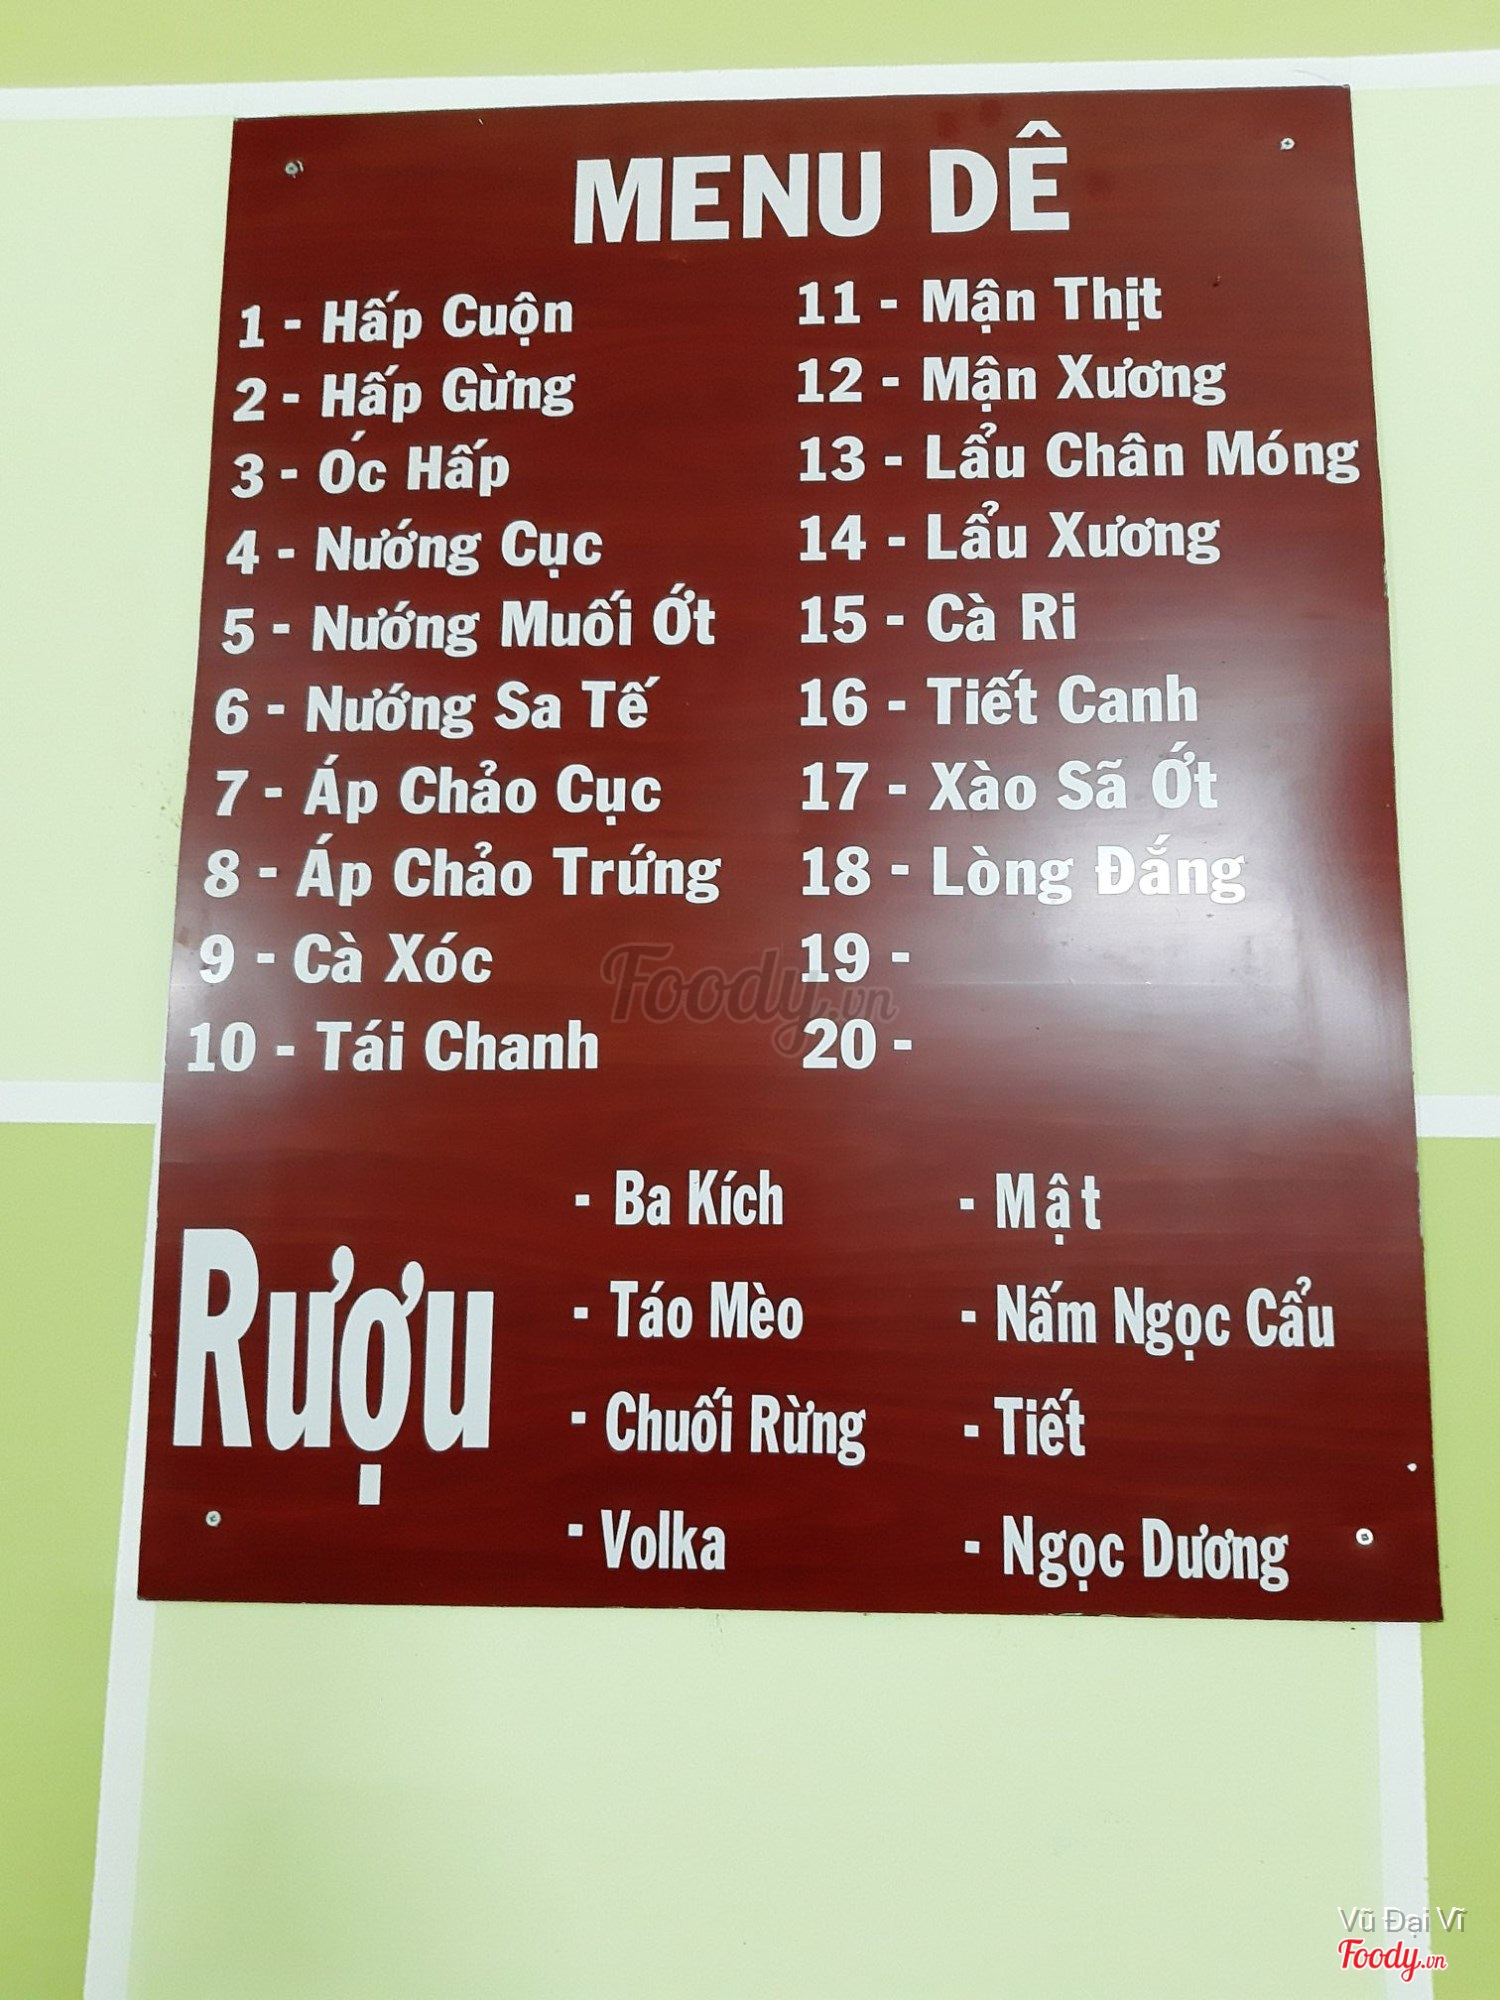 MENU DÊ
1 - Hấp Cuộn
2 - Hấp Gừng
3 - Óc Hấp
4 - Nướng Cục
5 - Nướng Muối Ớt
6 - Nướng Sa Tế
7 - Áp Chảo Cục
8 - Áp Chảo Trứng
9 - Cà Xóc
10 - Tái Chanh
11 - Mận Thịt
12 - Mận Xương
13 - Lẩu Chân Móng
14 - Lẩu Xương
15 - Cà Ri
16 - Tiết Canh
17 - Xào Sã Ớt
18 - Lòng Đắng
19 -
20 -
Foody.vn
Rượu
- Ba Kích
- Táo Mèo
- Chuối Rừng
- Volka
- Mật
- Nấm Ngọc Cẩu
- Tiết
- Ngọc Dương
Vũ Đại Vĩ
Foody.vn